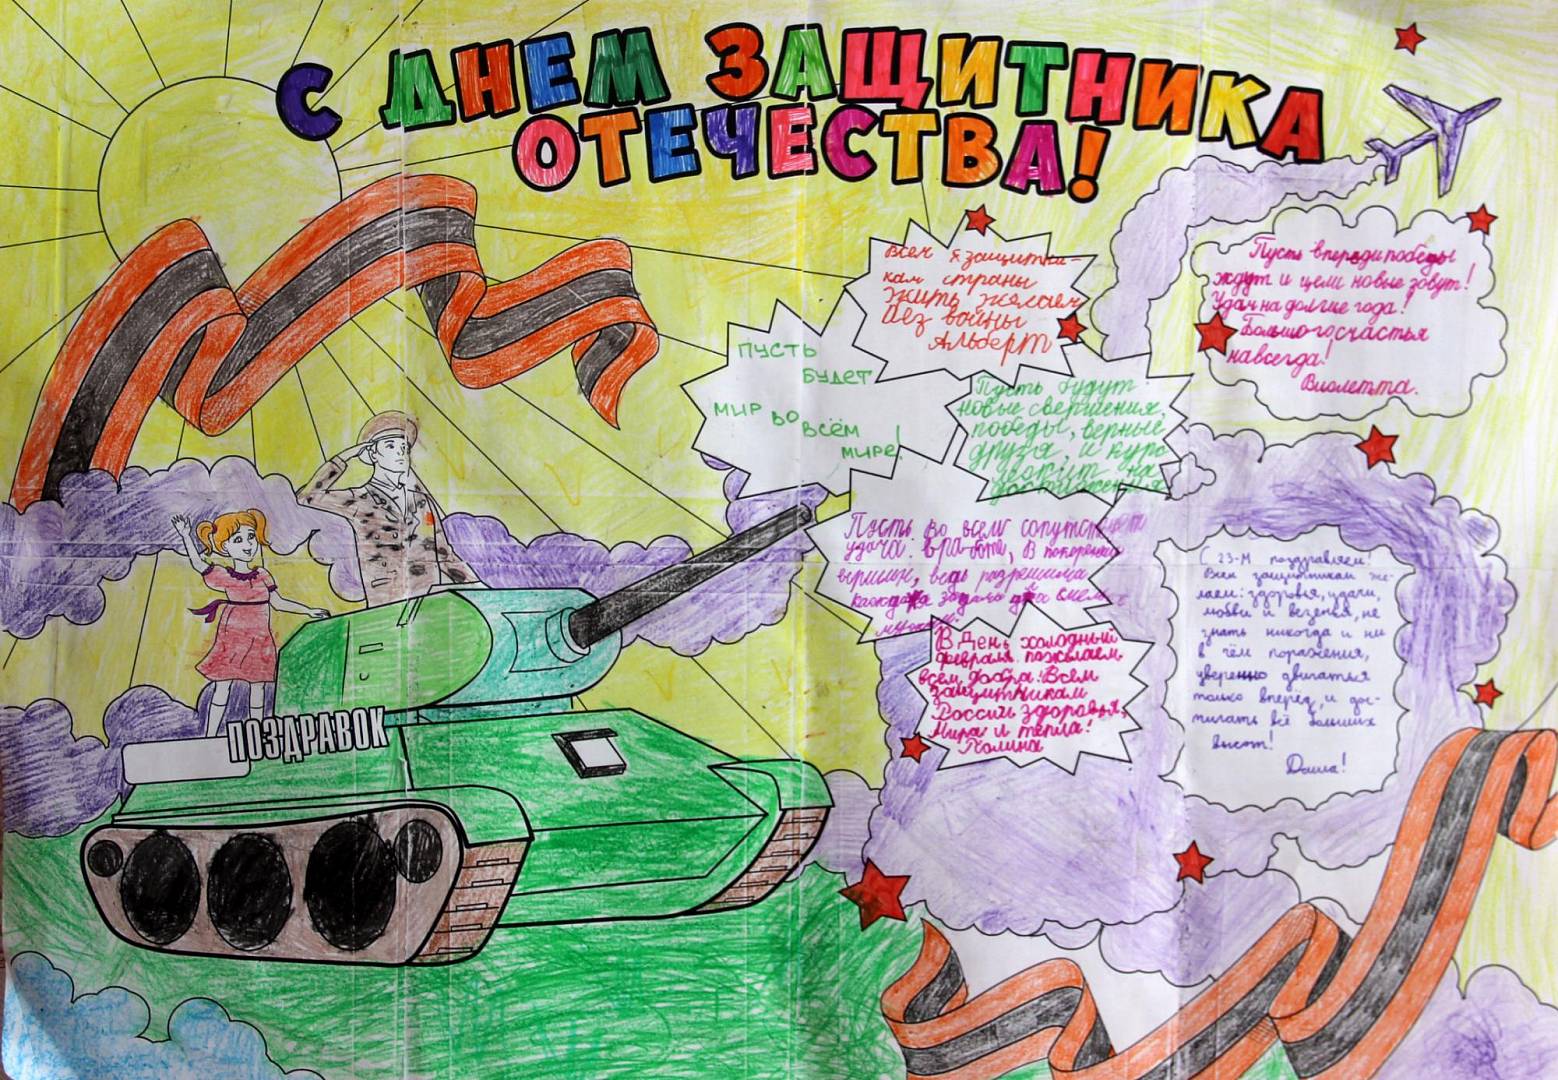 С ДНЕМ ЗАЩИТНИКА
ОТЕЧЕСТВА!
Всем защитни-
кам страны
жить желаем
без войны
Альберт
Пусть впереди победы
ждут и цели новые зовут!
Удач на долгие года!
Большого счастья
навсегда!
Виолетта.
ПУСТЬ
БУДЕТ
МИР ВО
ВСЁМ
МИРЕ!
Пусть будут
новые свершения,
победы, верные
друзья, и курс
на
достижения
Пусть во всем сопутствует
удача: в работе, в
ведь
каждая задача
С 23-м поздравляем!
Всем защитникам же-
лаем: здоровья, удачи,
любви и везенья, не
знать никогда и ни
в чём поражения,
уверенно двигаться
только вперёд, и дос-
тигать всё больших
высот!
Даша!
В День холодный
февраля пожелаем
всем добра. Всем
защитникам
России здоровья,
Мира и тепла!
Полина
ПОЗДРАВОК